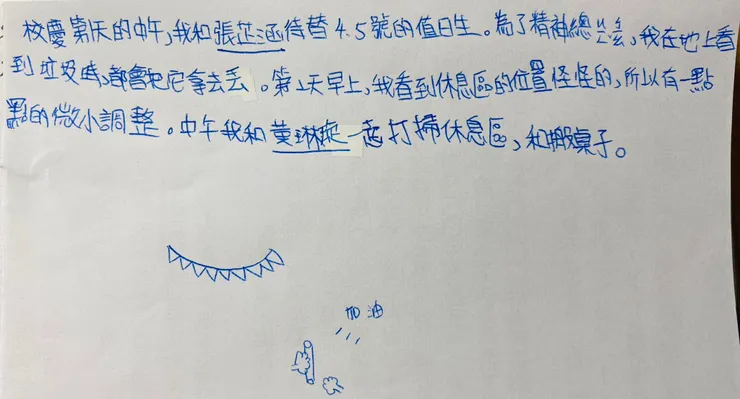 校慶第1天的中午,我和張芷涵待替4.5號的值日生。為了精神總錦標,我在地上看
到垃圾時,都會把它拿去丟。第2天早上,我看到休息區的位置怪怪的,所以有一點
點的微小調整。中午我和葉琳棆一起打掃休息區,和搬桌子。
加油